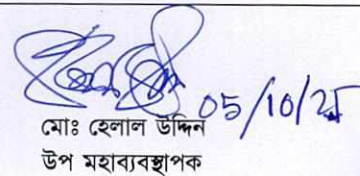 05/10/২৫
মোঃ হেলাল উদ্দিন
উপ মহাব্যবস্থাপক